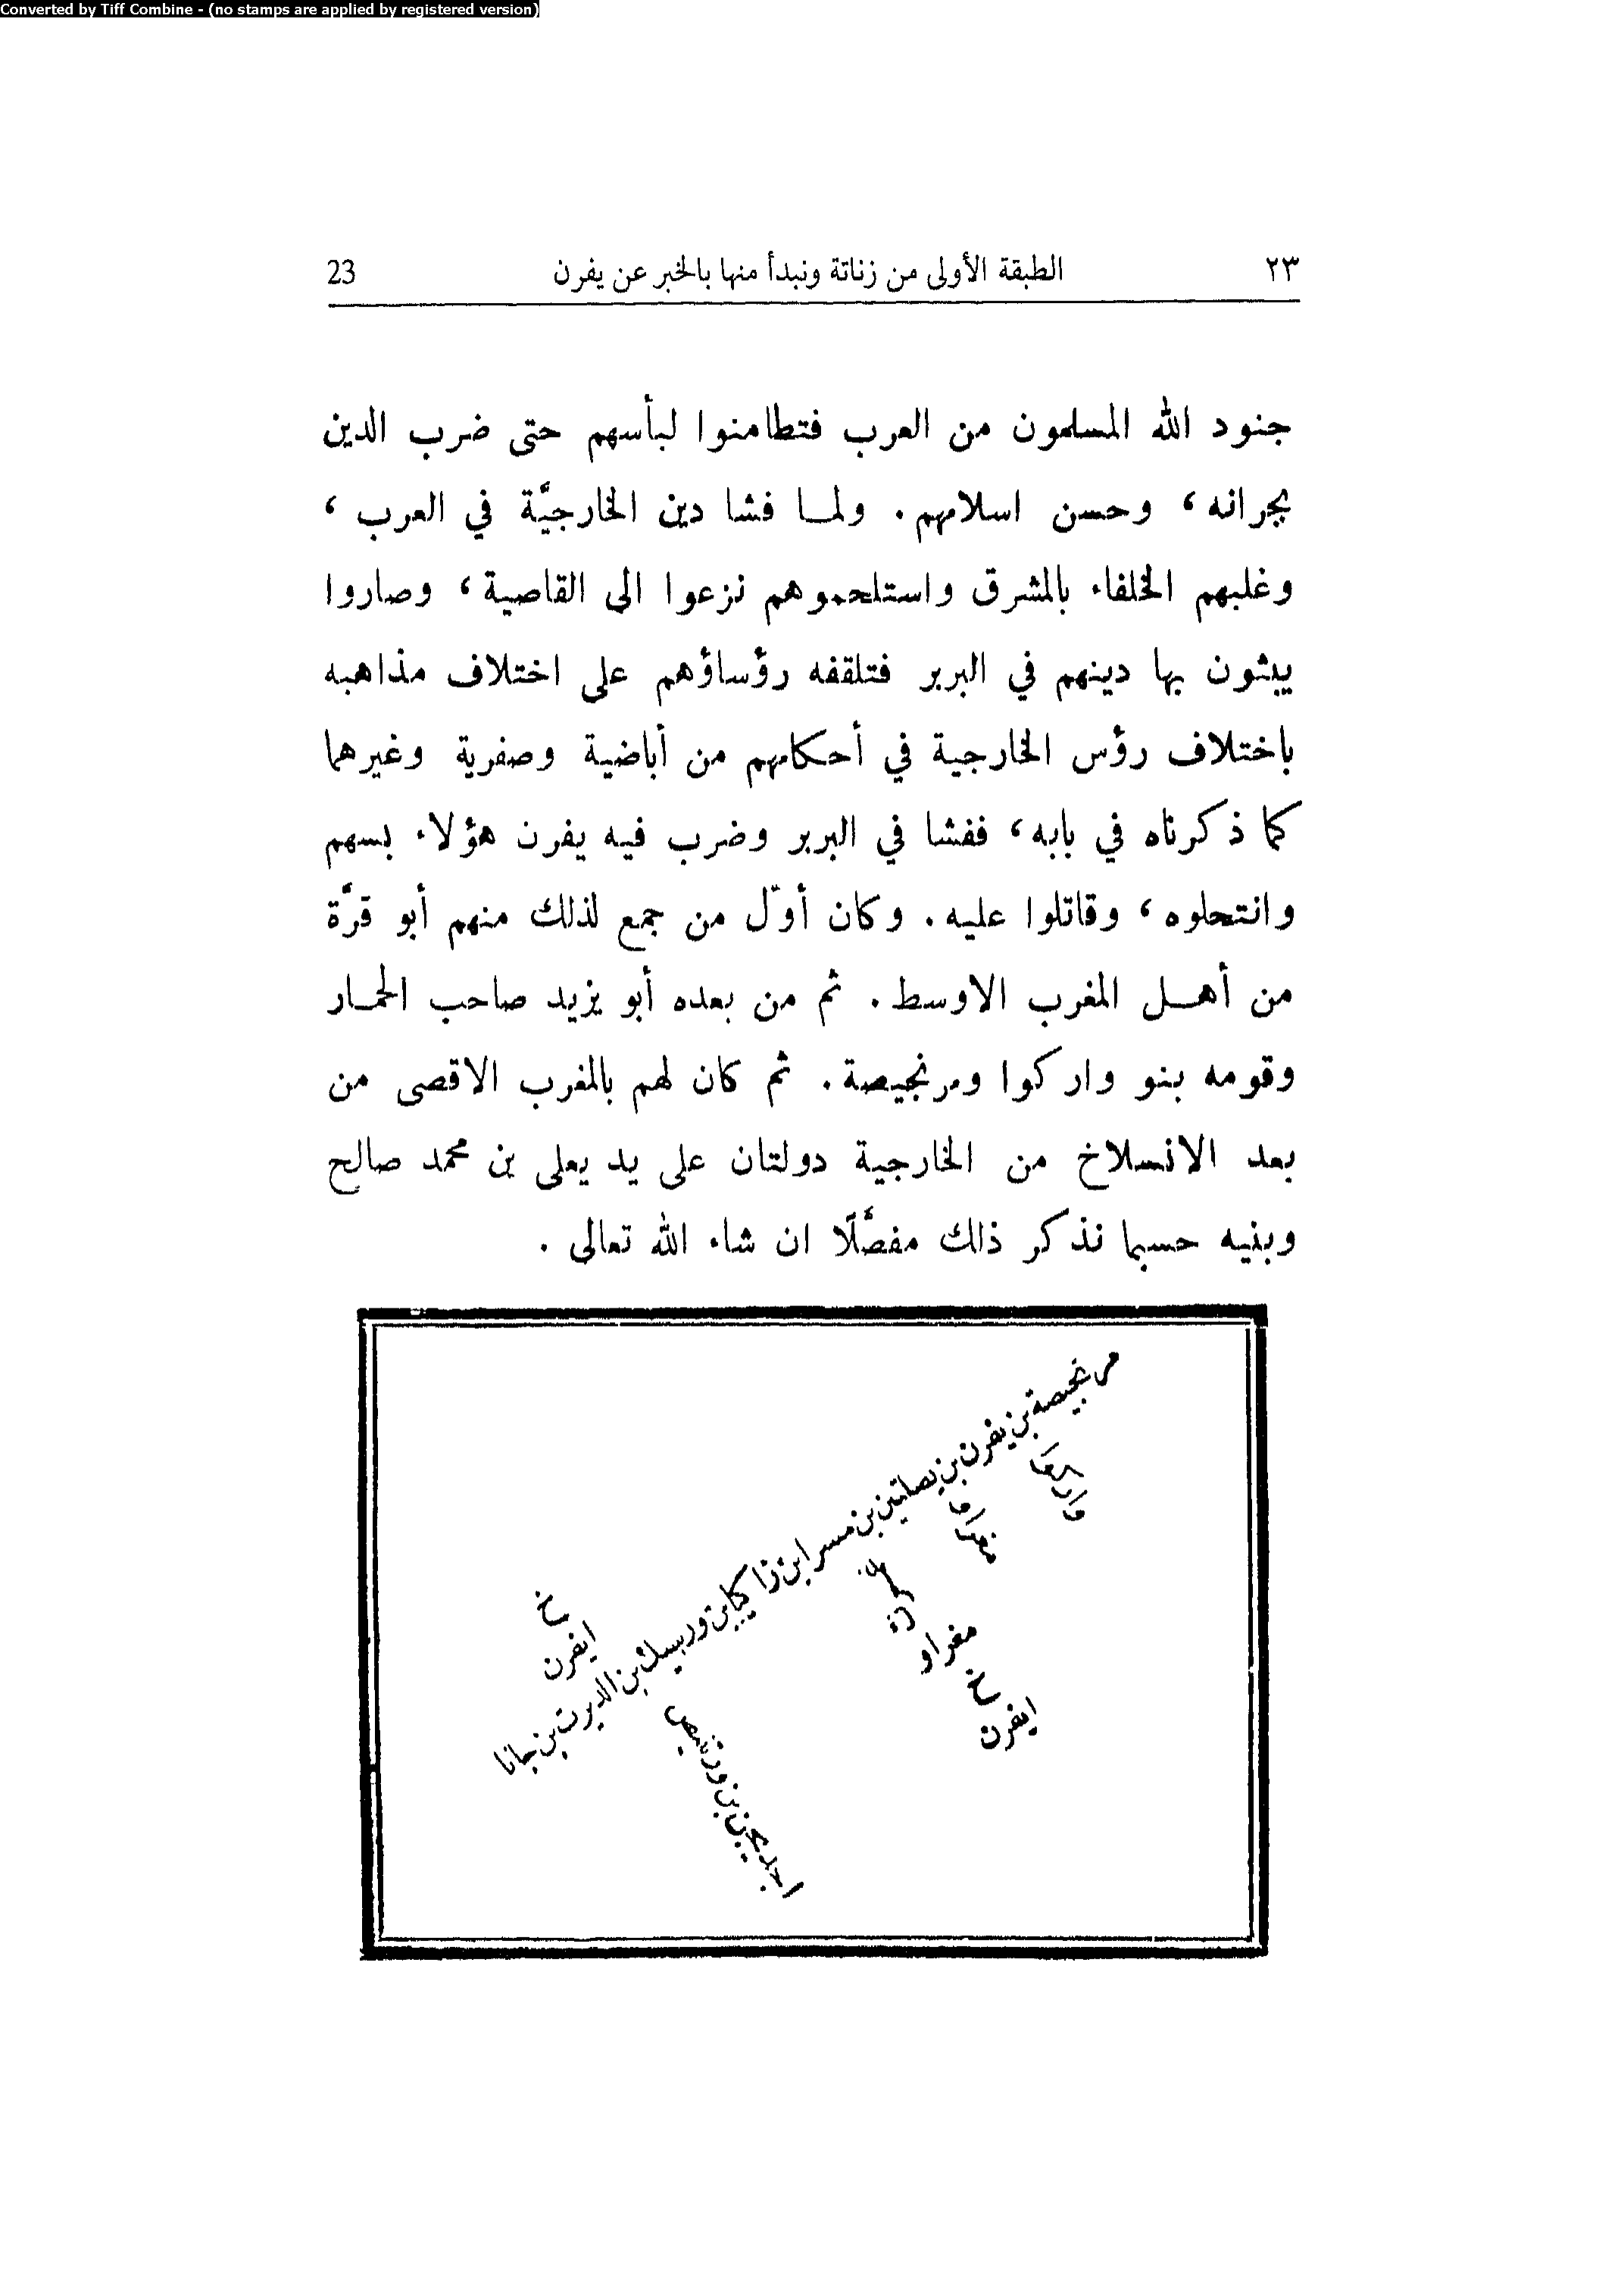 Converted by Tiff Combine - (no stamps are applied by registered version)
٢٣ الطبقة الأولى من زناتة ونبدأ منها بالخبر عن يفرن 23
جنود الله المسلمون من العرب فتطامنوا لبأسهم حتى ضرب الدين
بجرانه ، وحسن اسلامهم . ولما فشا دين الخارجيَّة في العرب ،
وغلبهم الخلفاء بالمشرق واستلحموهم نزعوا الى القاصية ، وصاروا
يبثون بها دينهم في البربر فتلقفه رؤساؤهم على اختلاف مذاهبه
باختلاف رؤس الخارجية في أحكامهم من أباضية وصفرية وغيرهما
كما ذكرناه في بابه ، ففشا في البربر وضرب فيه يفرن هؤلاء بسهم
وانتحلوه ، وقاتلوا عليه . وكان أوّل من جمع لذلك منهم أبو قرَّة
من أهل المغرب الاوسط . ثم من بعده أبو يزيد صاحب الحمار
وقومه بنو واركوا ومرنجيصة . ثم كان لهم بالمغرب الاقصى من
بعد الانسلاخ من الخارجية دولتان على يد يعلى بن محمد صالح
وبنيه حسبما نذكر ذلك مفصَّلًا ان شاء الله تعالى .
بن يفرن بن يصلتين بن مسرا بن زاكيا بن ورسيك بن الديرت بن جانا
مغراو
خ
ايفرن
خ
ايفرن